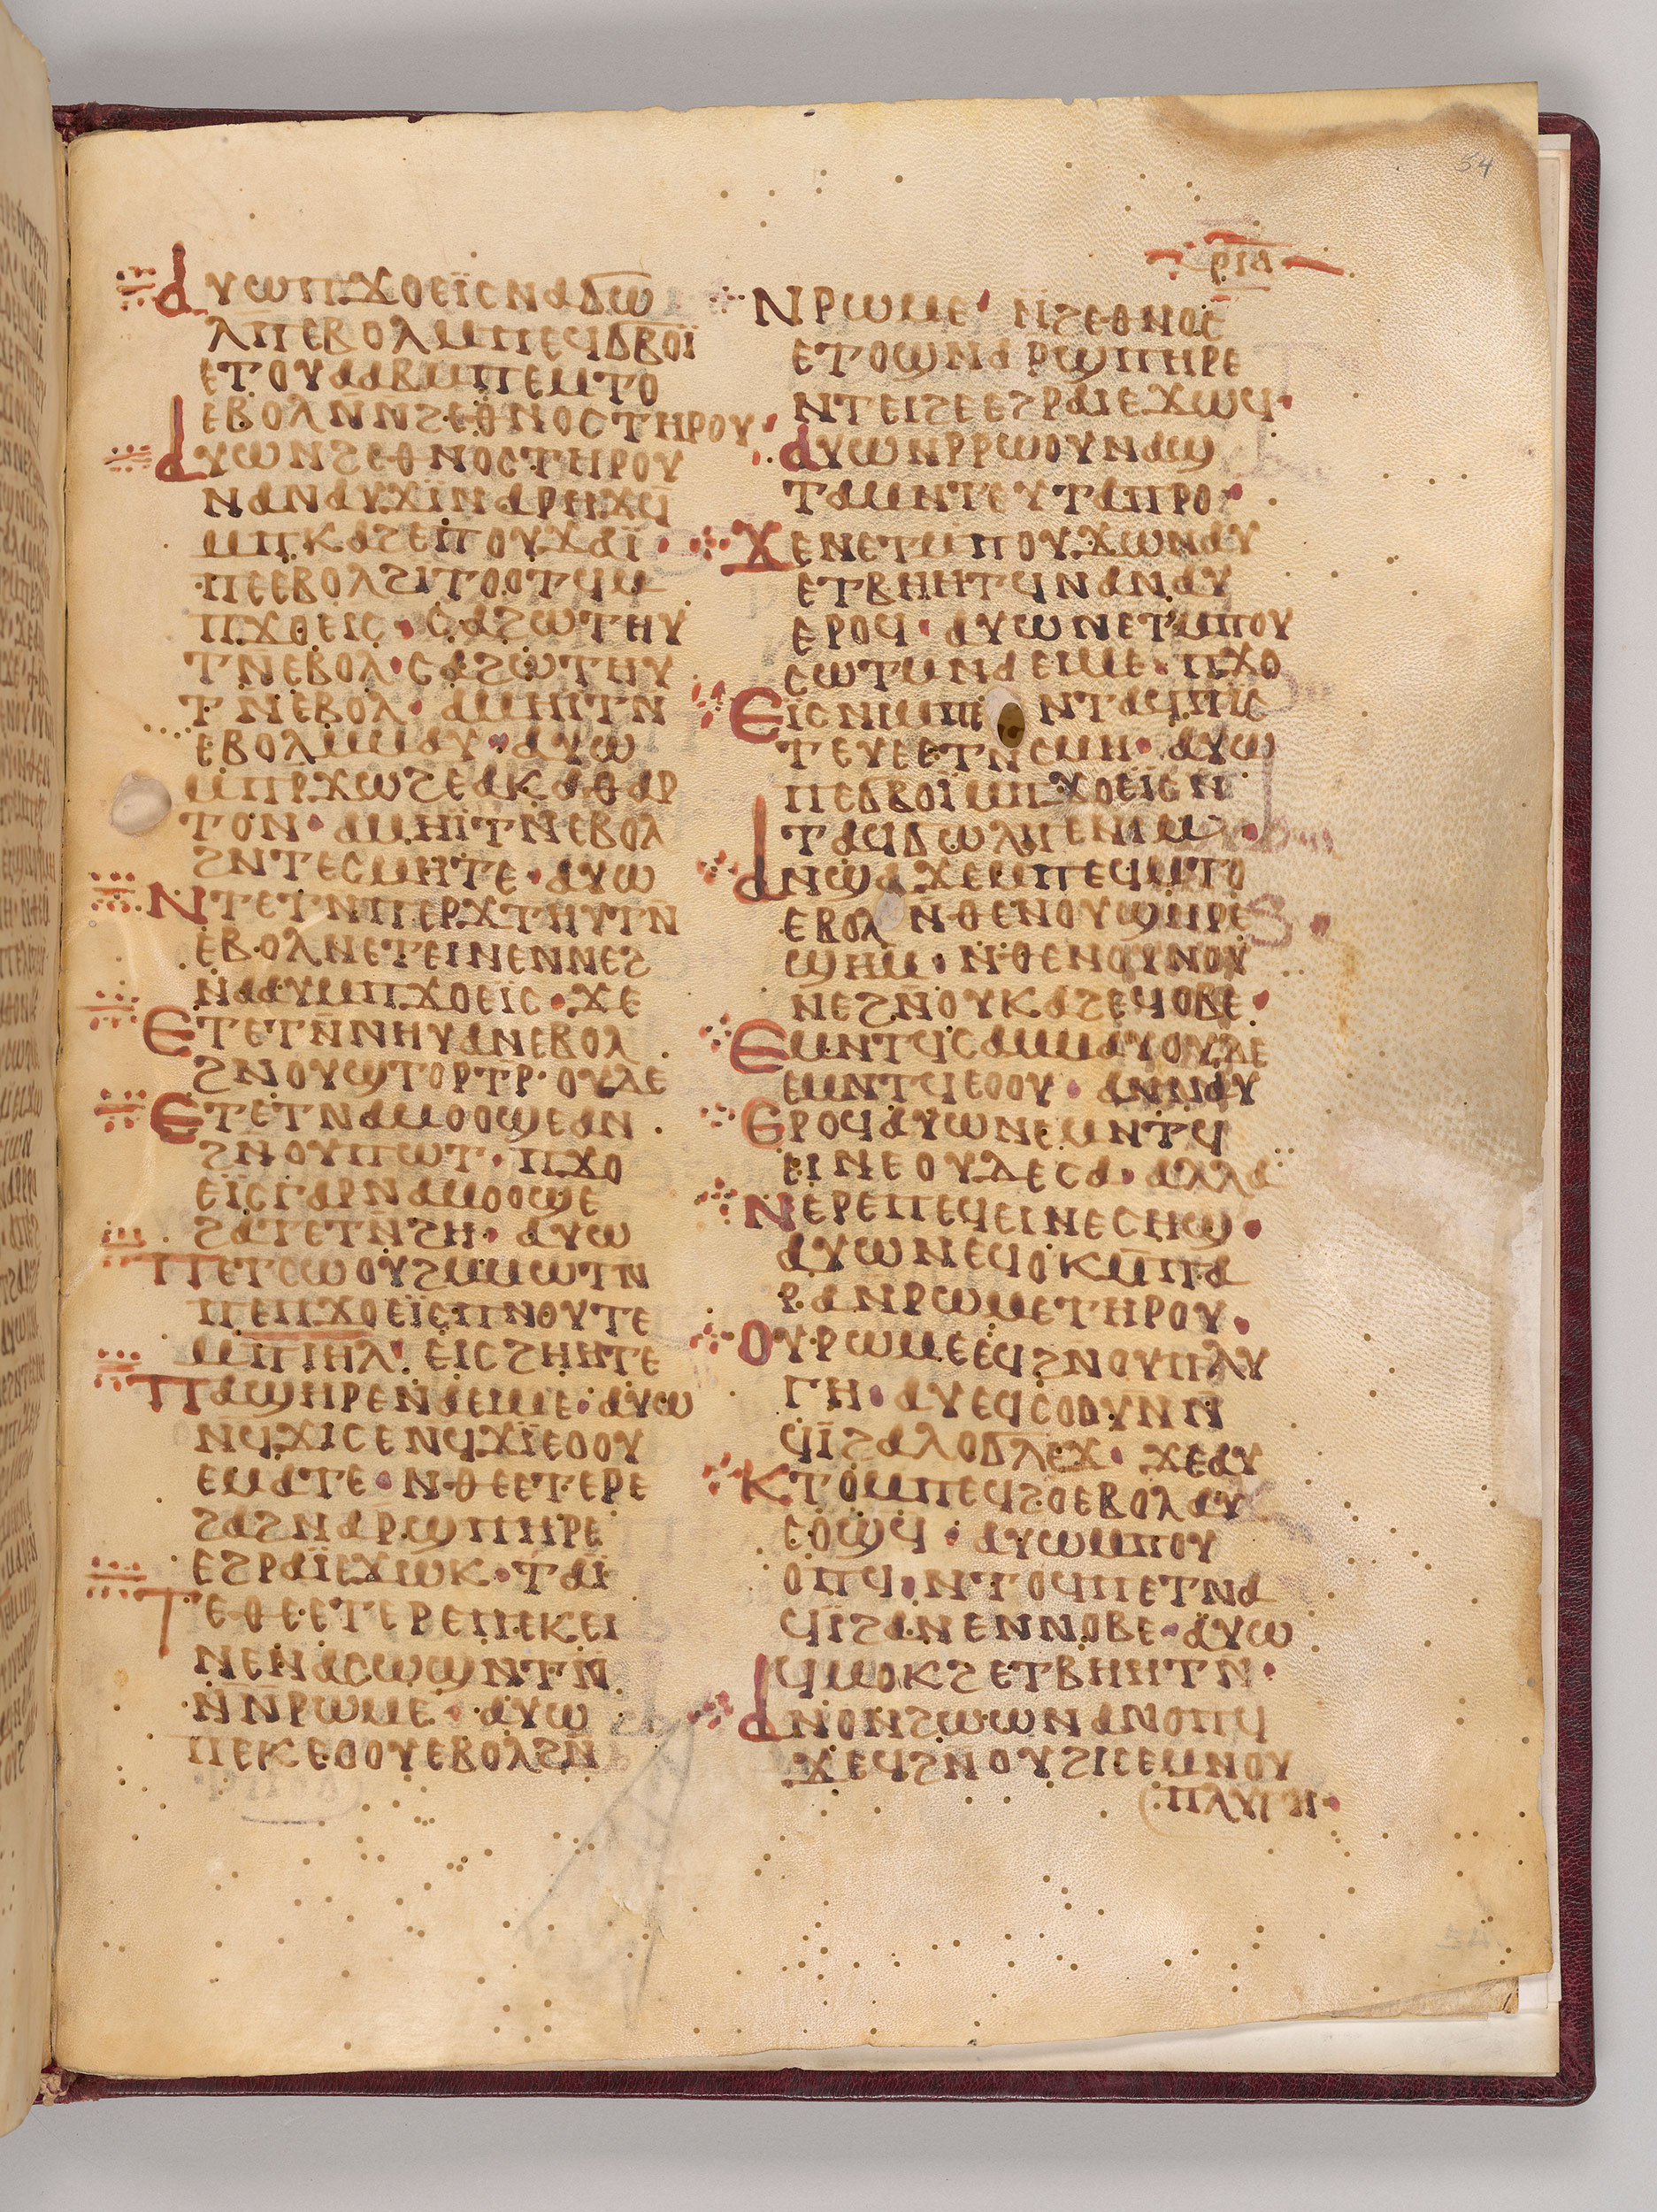 54
ⲣⲓⲁ
ⲁⲩⲱⲡϫⲟⲉⲓ̈ⲥⲛⲁϭⲱ
ⲗⲡⲉⲃⲟⲗⲙⲡⲉϥϭⲃⲟⲓ̈
ⲉⲧⲟⲩⲁⲁⲃⲙⲡⲉⲙⲧⲟ
ⲉⲃⲟⲗⲛ̄ⲛϩⲉⲑⲛⲟⲥⲧⲏⲣⲟⲩ
ⲁⲩⲱⲛϩⲉⲑⲛⲟⲥⲧⲏⲣⲟⲩ
ⲛⲁⲛⲁⲩϫⲓ̈ⲛⲁⲣⲏϫϥ
ⲙⲡⲕⲁϩⲉⲡⲟⲩϫⲁⲓ̈·
ⲡⲉⲉⲃⲟⲗϩⲓⲧⲟⲟⲧϥⲙ
ⲡϫⲟⲉⲓⲥ· ⲥⲁϩⲱⲧⲏⲩ
ⲧⲛ̄ⲉⲃⲟⲗ·ⲥⲁϩⲱⲧⲏⲩ
ⲧⲛⲉⲃⲟⲗ· ⲁⲙⲏⲓⲧⲛ
ⲉⲃⲟⲗⲙⲙⲁⲩ·ⲁⲩⲱ
ⲙⲡⲣϫⲱϩⲉⲁⲕⲁⲑⲁⲣ
ⲧⲟⲛ· ⲁⲙⲏⲓ̈ⲧⲛ̄ⲉⲃⲟⲗ
ϩⲛⲧⲉⲥⲙⲏⲧⲉ·ⲁⲩⲱ
ⲛⲧⲉⲧⲛⲡⲉⲣϫⲧⲏⲩⲧⲛ̄
ⲉⲃⲟⲗⲛⲉⲧⲉⲓⲛⲉⲛⲛⲉϩ
ⲛⲁⲁⲩⲙⲡϫⲟⲉⲓⲥ·ϫⲉ
ⲉⲧⲉⲧⲛ̄ⲛⲏⲩⲁⲛⲉⲃⲟⲗ
ϩⲛⲟⲩϣⲧⲟⲣⲧⲣ·ⲟⲩⲇⲉ
ⲉⲧⲉⲧⲛⲁⲙⲟⲟϣⲉⲁⲛ
ϩⲛⲟⲩⲡⲱⲧ·ⲡϫⲟ
ⲉⲓ̈ⲥⲅⲁⲣⲛⲁⲙⲟⲟϣⲉ
ϩⲁⲧⲉⲧⲛ̄ϩⲏ· ⲁⲩⲱ
ⲡⲉⲧⲥⲱⲟⲩϩⲙⲙⲱⲧⲛ
ⲡⲉⲡϫⲟⲉⲓ̈ⲥⲡⲛⲟⲩⲧⲉ
ⲙⲡⲓⲏⲗ· ⲉⲓⲥϩⲏⲏⲧⲉ
ⲡⲁϣⲏⲣⲉⲛⲁⲉⲓⲙⲉ·ⲁⲩⲱ
ⲛϥϫⲓⲥⲉⲛϥϫⲓ̈ⲉⲟⲟⲩ
ⲉⲙⲁⲧⲉ·ⲛⲑⲉⲉⲧⲉⲣⲉ
ϩⲁϩⲛⲁⲣϣⲡⲏⲣⲉ
ⲉϩⲣⲁⲓ̈ⲉϫⲱⲕ·ⲧⲁⲓ̈
ⲧⲉⲑⲉⲉⲧⲉⲣⲉⲡⲉⲕⲉⲓ
ⲛⲉⲛⲁⲥⲱϣⲛⲧⲛ̄
ⲛ̄ⲛ̄ⲣⲱⲙⲉ· ⲁⲩⲱ
ⲡⲉⲕⲉⲟⲟⲩⲉⲃⲟⲗϩⲛ̄
ⲛⲣⲱⲙⲉ· ⲛϩⲉⲑⲛⲟⲥ
ⲉⲧⲟϣⲛⲁⲣϣⲡⲏⲣⲉ
ⲛⲧⲉⲓϩⲉⲉϩⲣⲁⲓⲉϫⲱϥ·
ⲁⲩⲱⲛⲣⲣⲱⲟⲩⲛⲁϣ
ⲧⲁⲙⲛⲧⲉⲩⲧⲁⲡⲣⲟ·
ϫⲉⲛⲉⲧⲙⲡⲟⲩϫⲱⲛⲁⲩ
ⲉⲧⲃⲏⲏⲧϥⲛⲁⲛⲁⲩ
ⲉⲣⲟϥ· ⲁⲩⲱⲛⲉⲧⲙⲡⲟⲩ
ⲥⲱⲧⲙⲛⲁⲉⲓⲙⲉ·ⲡϫⲟ
ⲉⲓⲥⲛⲓⲙⲡⲉ ⲛⲧⲁϥⲡⲓⲥ
ⲧⲉⲩⲉⲉⲧⲛⲥⲙⲏ· ⲁⲩⲱ
ⲡⲉϭⲃⲟⲓ̈ⲙⲡϫⲟⲉⲓ̈ⲥⲛ
ⲧⲁϥϭⲱⲗⲡⲉⲛⲓⲙ·
ⲁⲛϣⲁϫⲉⲙⲡⲉϥⲙⲧⲟ
ⲉⲃⲟⲗ ⲛⲑⲉⲛⲟⲩϣⲏⲣⲉ
ϣⲏⲙ· ⲛⲑⲉⲛⲟⲩⲛⲟⲩ
ⲛⲉϩⲛ̄ⲟⲩⲕⲁϩⲉϥⲟⲃⲉ·
ⲉⲙⲛⲧϥⲥⲁⲙⲙⲁⲩⲟⲩⲇⲉ
ⲉⲙⲛⲧϥⲉⲟⲟⲩ· ⲁⲛⲛⲁⲩ
ⲉⲣⲟϥⲁⲩⲱⲛⲉⲙⲛⲧϥ
ⲉⲓⲛⲉⲟⲩⲇⲉⲥⲁ· ⲁⲗⲗⲁ
ⲛⲉⲣⲉⲡⲉϥⲉⲓⲛⲉⲥⲏϣ·
ⲁⲩⲱⲛⲉϥⲟⲕⲙ̄ⲡⲁ
ⲣⲁⲛⲣⲱⲙⲉⲧⲏⲣⲟⲩ·
ⲟⲩⲣⲱⲙⲉⲉϥϩⲛⲟⲩⲡⲗⲩ
ⲅⲏ· ⲁⲩⲉϥⲥⲟⲟⲩⲛⲛ̄
ϥⲓ̄ϩⲁⲗⲟϭⲗⲉϫ· ϫⲉⲁⲩ
ⲕⲧⲟⲙⲡⲉϥϩⲟⲉⲃⲟⲗⲁⲩ
ⲥⲟϣϥ· ⲁⲩⲱⲙⲡⲟⲩ
ⲟⲡϥ·ⲛⲧⲟϥⲡⲉⲧⲛⲁ
ϥⲓ̈ϩⲁⲛⲉⲛⲛⲟⲃⲉ·ⲁⲩⲱ
ϥⲙⲟⲕϩⲉⲧⲃⲏⲏⲧⲛ·
ⲁⲛⲟⲛϩⲱⲱⲛⲁⲛⲟⲡϥ
ϫⲉϥϩⲛⲟⲩϩⲓⲥⲉⲙⲛⲟⲩ
ⲡⲗⲩⲅⲏ·